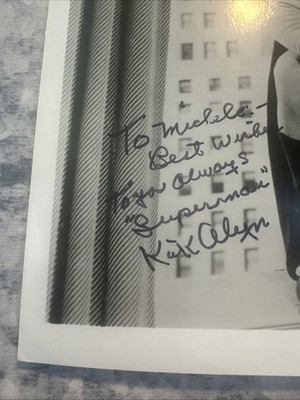 To Michele -
Best Wishes
To you always
"Superman"
Kirk Alyn